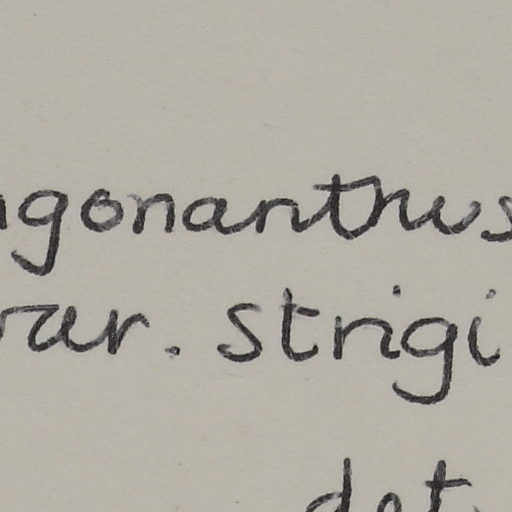 gonanthus
var. strigi
det.